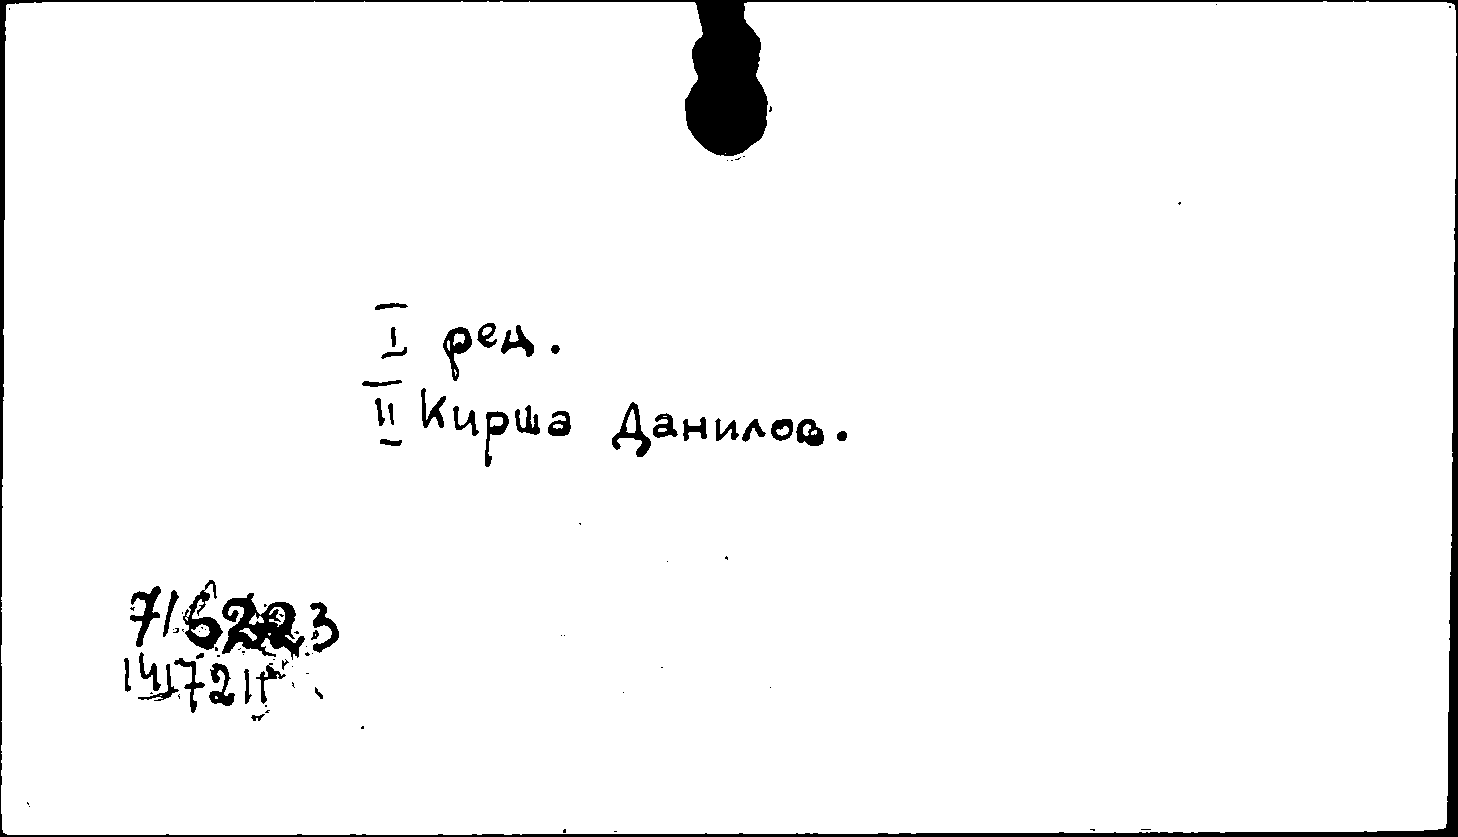 I ред.
II Кирша Данилов.
716223